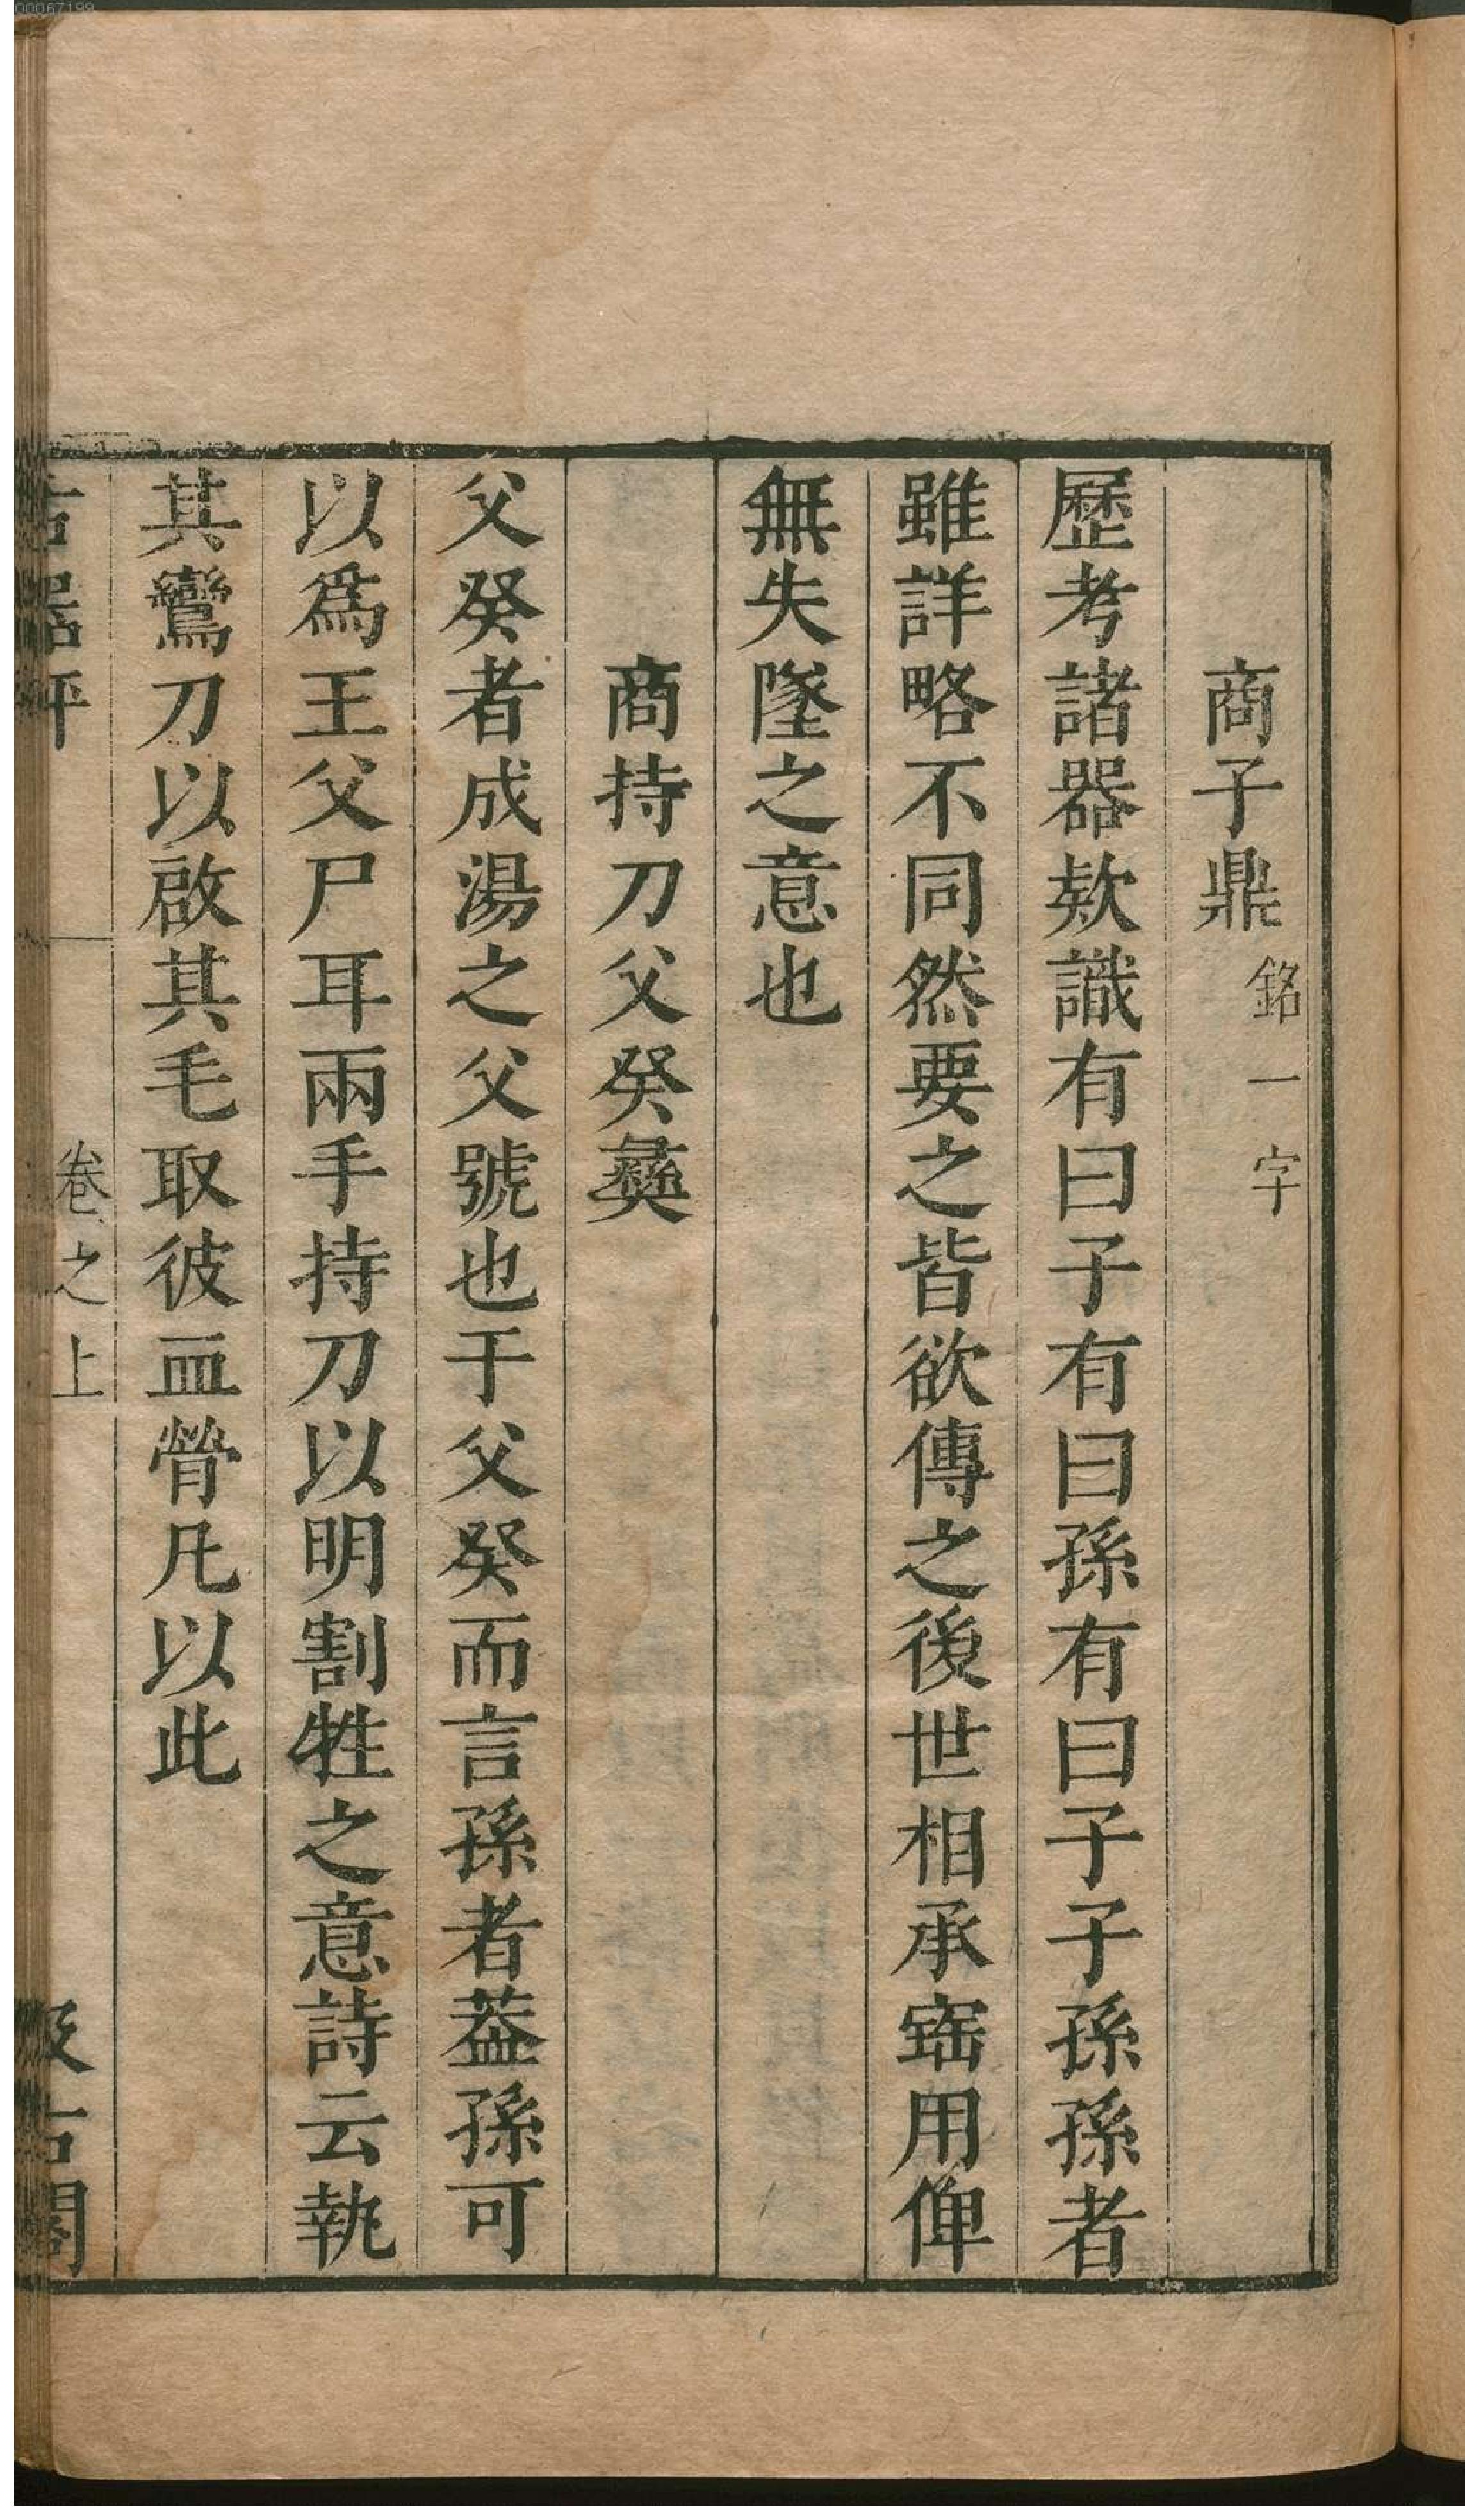 商子鼎銘一字
歷考諸器欵識有曰子有曰孫有曰子子孫孫者
雖詳略不同然要之皆欲傳之後世相承寳用俾
無失墜之意也
商持刀父癸彝
父癸者成湯之父號也于父癸而言孫者葢孫可
以爲王父尸耳兩手持刀以明割牲之意詩云執
其鸞刀以啟其毛取彼血膋凡以此
卷之上
00067199